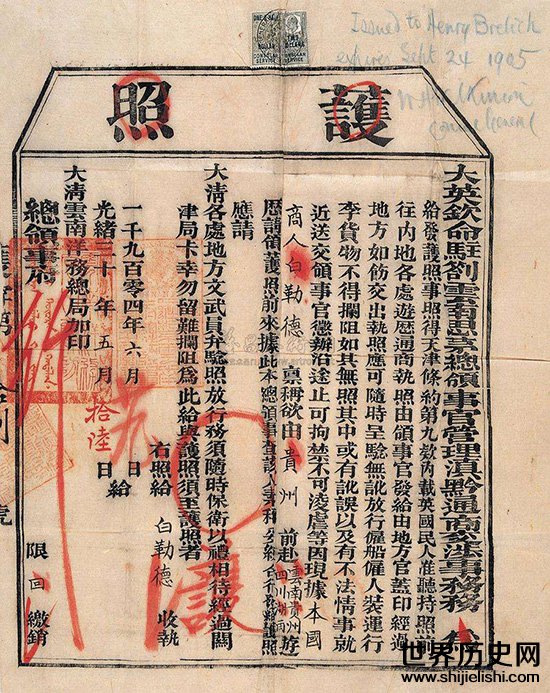 Issued to Henry Bretick
expires Sept. 24 1905
護照
大英欽命駐劄雲南思茅總領事官管理滇黔通商交涉事務務
給發護照事照得天津條約第九款內載英國民人准聽持照前
往內地各處遊歷通商執照由領事官發給由地方官蓋印經過
地方如飭交出執照應可隨時呈驗無訛放行僱船僱人裝運行
李貨物不得攔阻如其無照其中或有訛誤以及有不法情事就
近送交領事官懲辦沿途止可拘禁不可凌虐等因現據本國
商人白勒德稟稱欲由貴州前赴雲南貴州四川湖南遊
歷請領護照前來據此本總領事查該人
應請
大清各處地方文武員弁驗照放行務須隨時保衛以禮相待經過關
津局卡幸勿留難攔阻爲此給與護照須至護照者
右照給白勒德收執
一千九百零四年六月日給
光緒三十年五月拾陸日給
大清雲南洋務總局加印
總領事府
限回繳銷
世界历史网
www.shijielishi.com